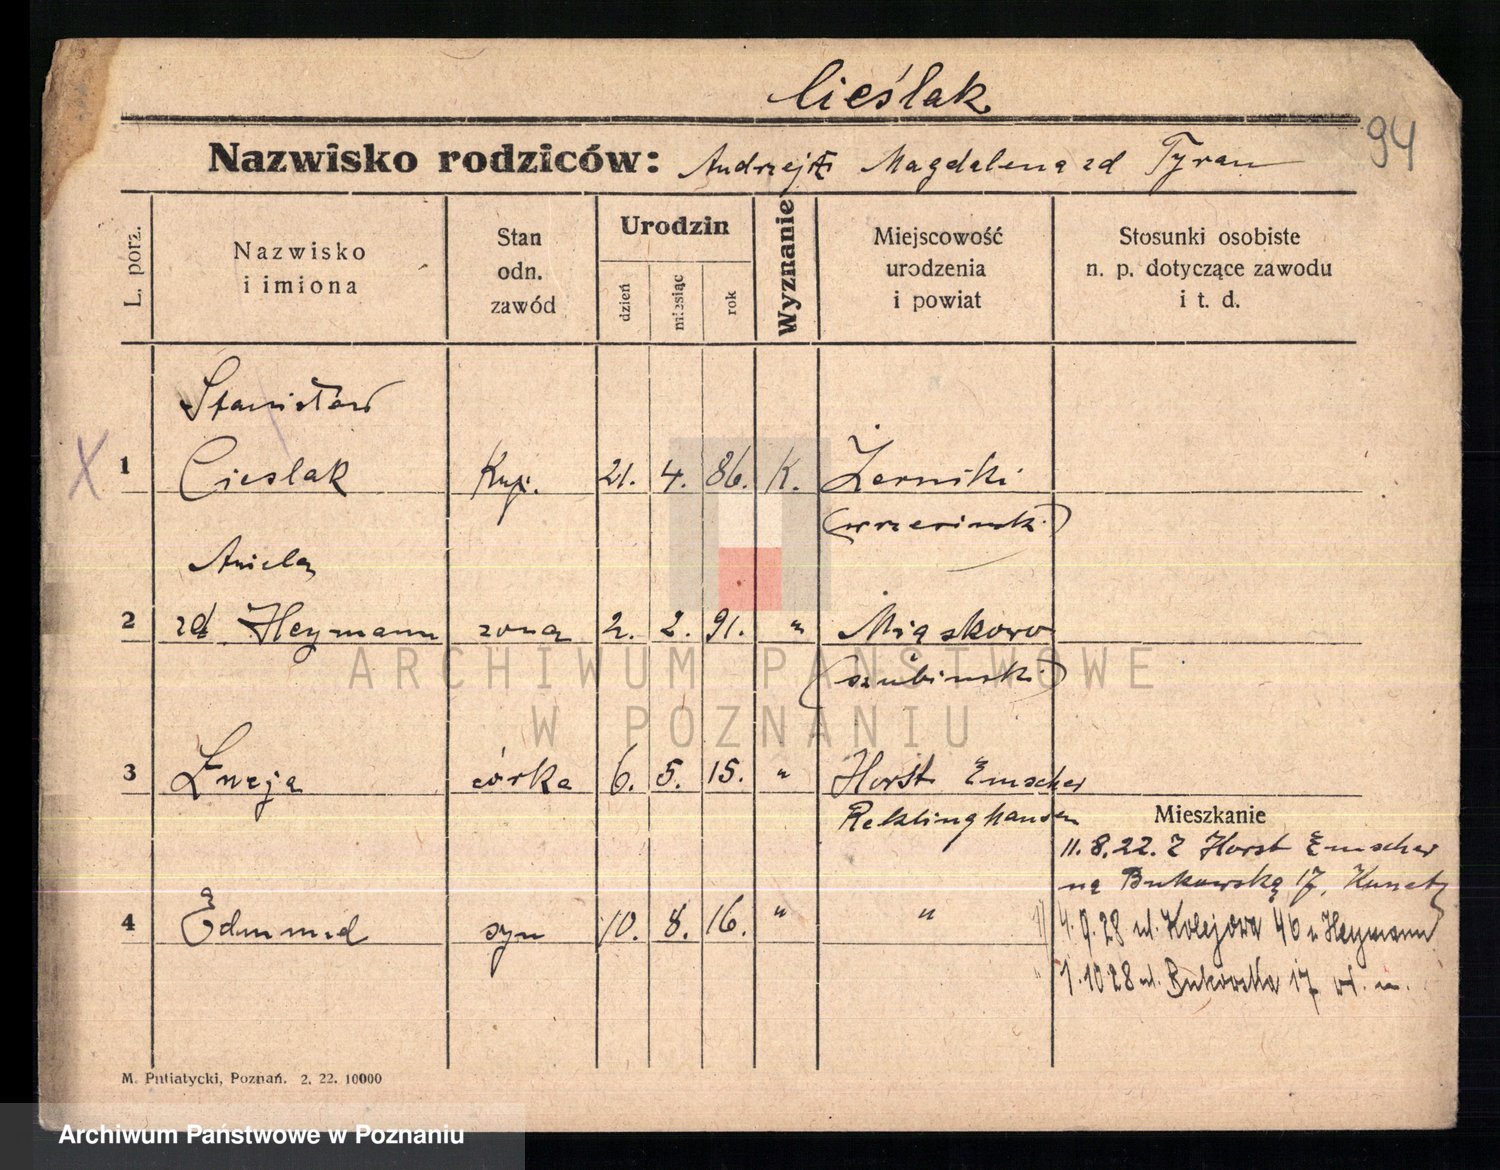 Cieślak
94
Nazwisko rodziców: Andrzej i Magdalena zd Tyran
L. porz.
Nazwisko
i imiona
Stan
odn.
zawód
Urodzin
dzień
miesiąc
rok
Wyznanie
Miejscowość
urodzenia
i powiat
Stosunki osobiste
n. p. dotyczące zawodu
i t. d.
Stanisław
X 1 Cieslak Kup. 21. 4. 86. K. Żerniki
(wrzesiński)
Aniela
2 zd Heymann żona 2. 2. 91. " Miąskowo
(szubiński)
3 Łucja córka 6. 5. 15. " Horst Emscher
Reklinghausen
Mieszkanie
11.8.22. Z Horst Emscher
na Bukowską 17,
4 Edmund syn 10. 8. 16. " "
4.9.28 ul. Kolejowa 46 u Heymann
1.10 28 ul. Bukowska 17 wł. m.
M. Putiatycki, Poznań. 2. 22. 10000
ARCHIWUM PAŃSTWOWE
W POZNANIU
Archiwum Państwowe w Poznaniu